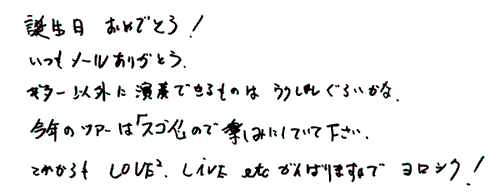 誕生日 おめでとう！
いつもメールありがとう．
ギター以外に演奏できるものは うりしれぐらいかな．
今年のツアーは「スゴイ」ので楽しみにしていて下さい．
これからも LOVE². LIVE etc がんばりますので ヨロシク！